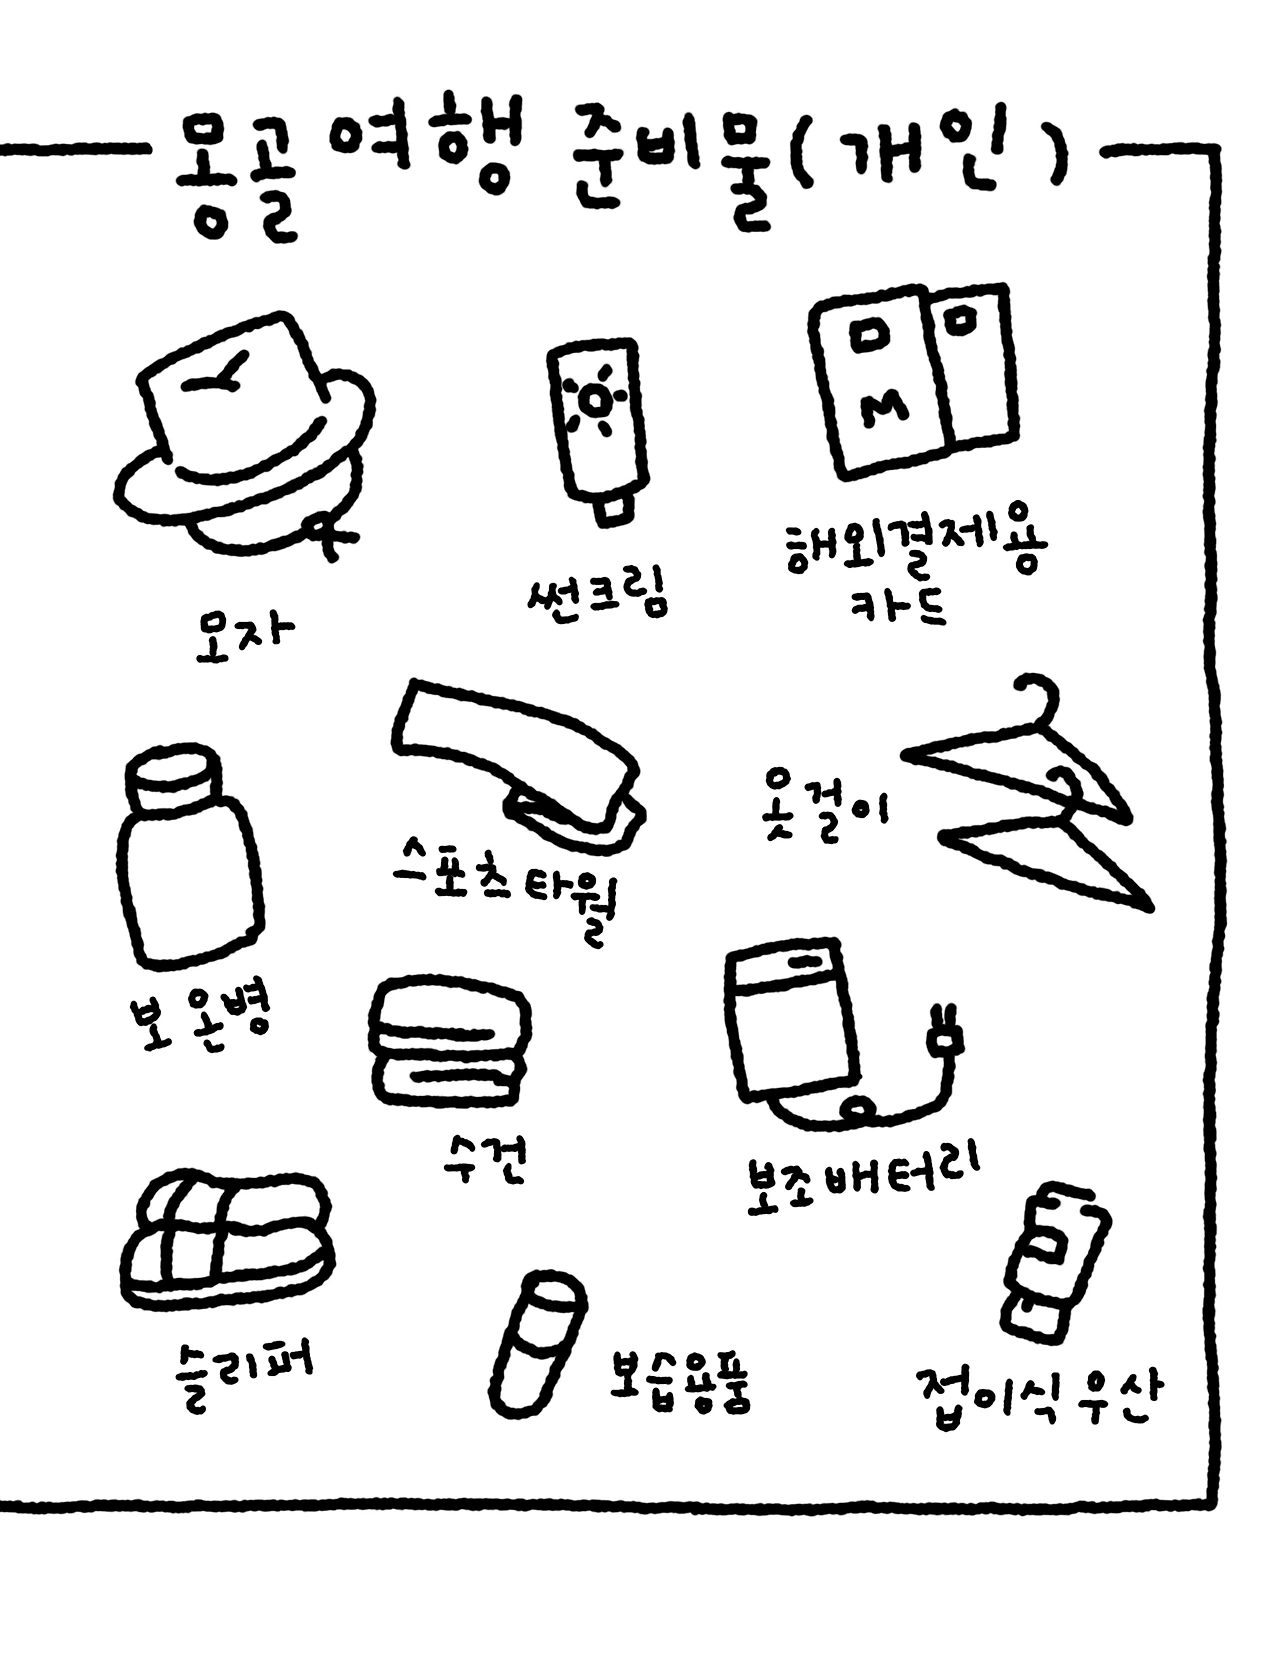 몽골 여행 준비물(개인)
M
모자
썬크림
해외결제용
카드
보온병
스포츠 타월
옷걸이
수건
보조배터리
슬리퍼
보습용품
접이식 우산